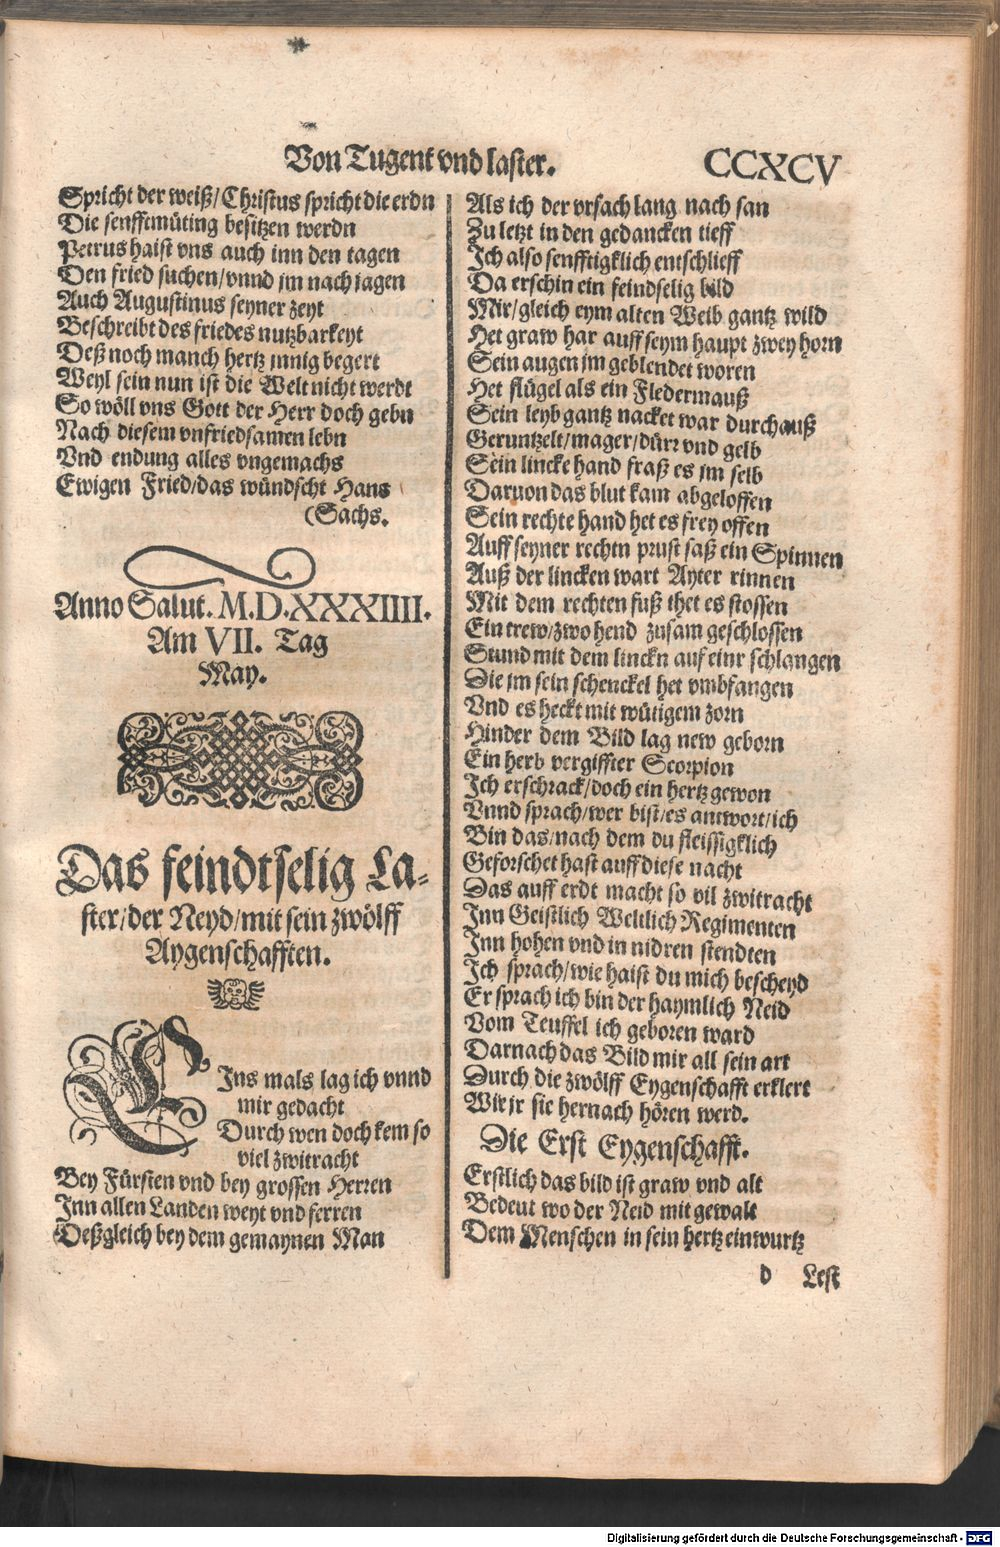 Von Tugent vnd laster.
CCXCV
Spricht der weiß/Christus spricht die erdn
Die senfftmüting besitzen werdn
Petrus haist vns auch inn den tagen
Den fried suchen/vnnd jm nach jagen
Auch Augustinus seyner zeyt
Beschreibt des friedes nutzbarkeyt
Deß noch manch hertz jnnig begert
Weyl sein nun ist die Welt nicht werdt
So wöll vns Gott der Herr doch gebn
Nach diesem vnfriedsamen lebn
Vnd endung alles vngemachs
Ewigen Fried/das wündscht Hans
(Sachs.
Anno Salut. M.D.XXXIIII.
Am VII. Tag
May.
Das feindtselig La-
ster/der Neyd/mit sein zwölff
Aygenschafften.
EJns mals lag ich vnnd
mir gedacht
Durch wen doch kem so
viel zwitracht
Bey Fürsten vnd bey grossen Herren
Jnn allen Landen weyt vnd ferren
Deßgleich bey dem gemaynen Man
Als ich der vrsach lang nach san
Zu letzt in den gedancken tieff
Jch also senfftigklich entschlieff
Da erschin ein feindselig bild
Mir/gleich eym alten Weib gantz wild
Het graw har auff seym haupt zwey horn
Sein augen jm geblendet woren
Het flügel als ein Fledermauß
Sein leyb gantz nacket war durchauß
Geruntzelt/mager/dürr vnd gelb
Sein lincke hand fraß es jm selb
Daruon das blut kam abgeloffen
Sein rechte hand het es frey offen
Auff seyner rechtn prust saß ein Spinnen
Auß der lincken wart Ayter rinnen
Mit dem rechten fuß thet es stossen
Ein trew/zwo hend zusam geschlossen
Stund mit dem linckn auf einr schlangen
Die jm sein schenckel het vmbfangen
Vnd es heckt mit wütigem zorn
Hinder dem Bild lag new geborn
Ein herb vergiffter Scorpion
Jch erschrack/doch ein hertz gewon
Vnnd sprach/wer bist/es antwort/ich
Bin das/nach dem du fleissigklich
Geforschet hast auff diese nacht
Das auff erdt macht so vil zwitracht
Jnn Geistlich Weltlich Regimenten
Jnn hohen vnd in nidren stendten
Jch sprach/wie haist du mich bescheyd
Er sprach ich bin der haymlich Neid
Vom Teuffel ich geboren ward
Darnach das Bild mir all sein art
Durch die zwölff Eygenschafft erklert
Wie jr sie hernach hören werd.
Die Erst Eygenschafft.
Erstlich das bild ist graw vnd alt
Bedeut wo der Neid mit gewalt
Dem Menschen in sein hertz einwurtz
d Lest
Digitalisierung gefördert durch die Deutsche Forschungsgemeinschaft - DFG